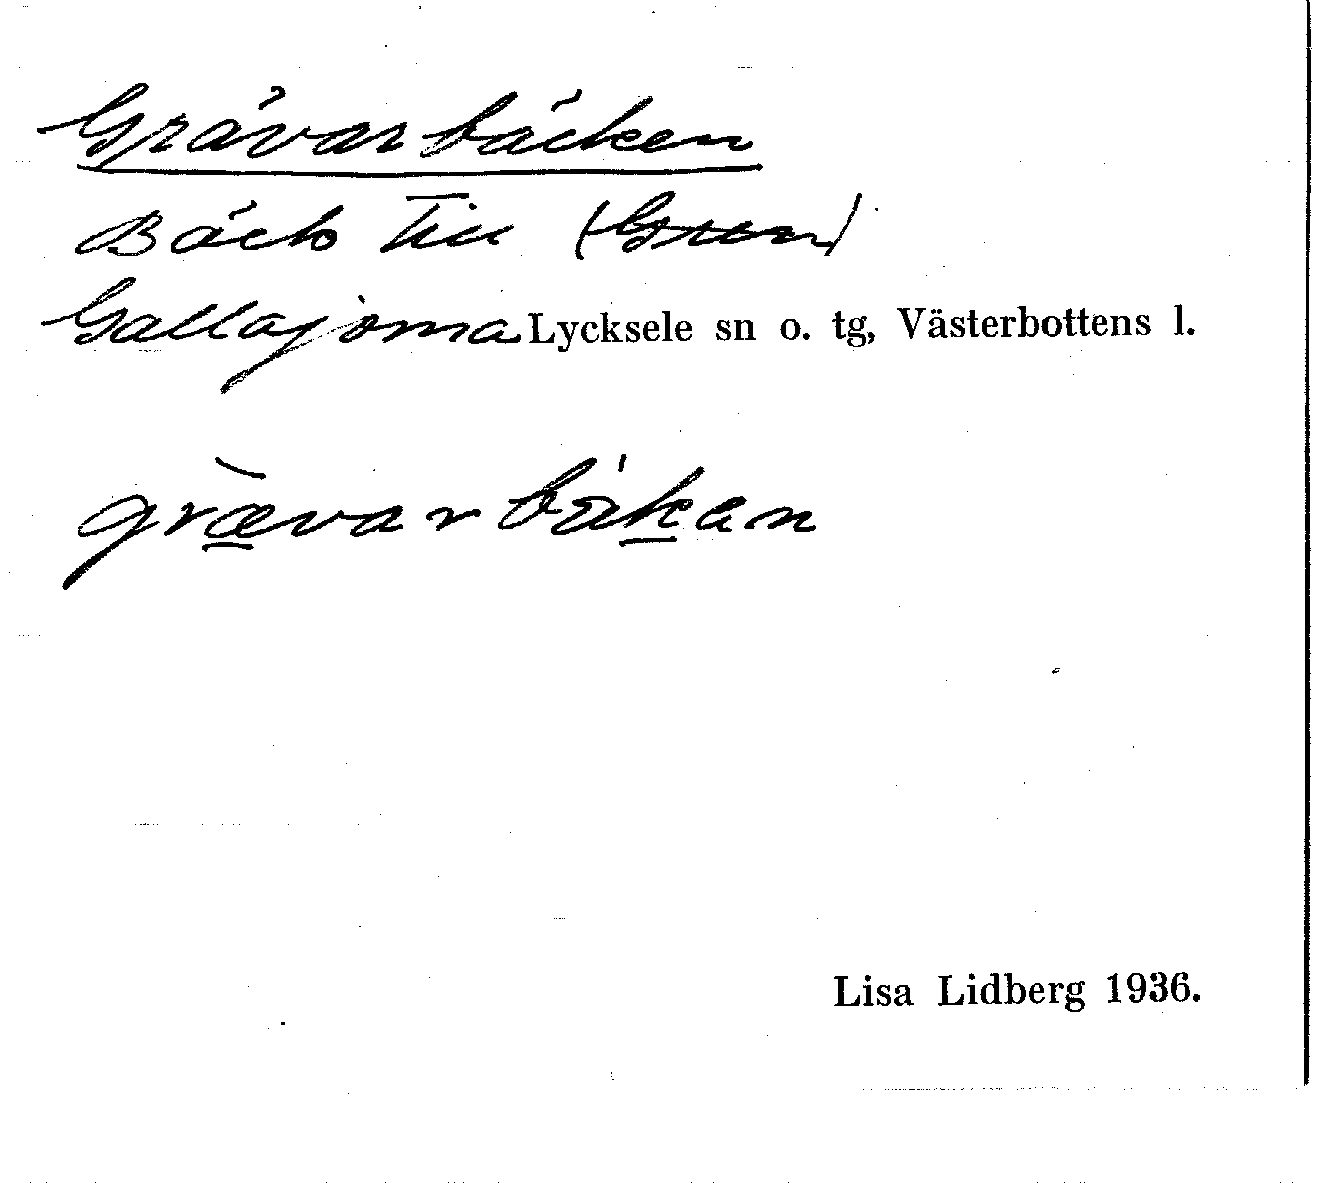 Grävarbäcken
Bäck till (Gren)
Gallajoma Lycksele sn o. tg, Västerbottens l.
grævarbäkan
Lisa Lidberg 1936.